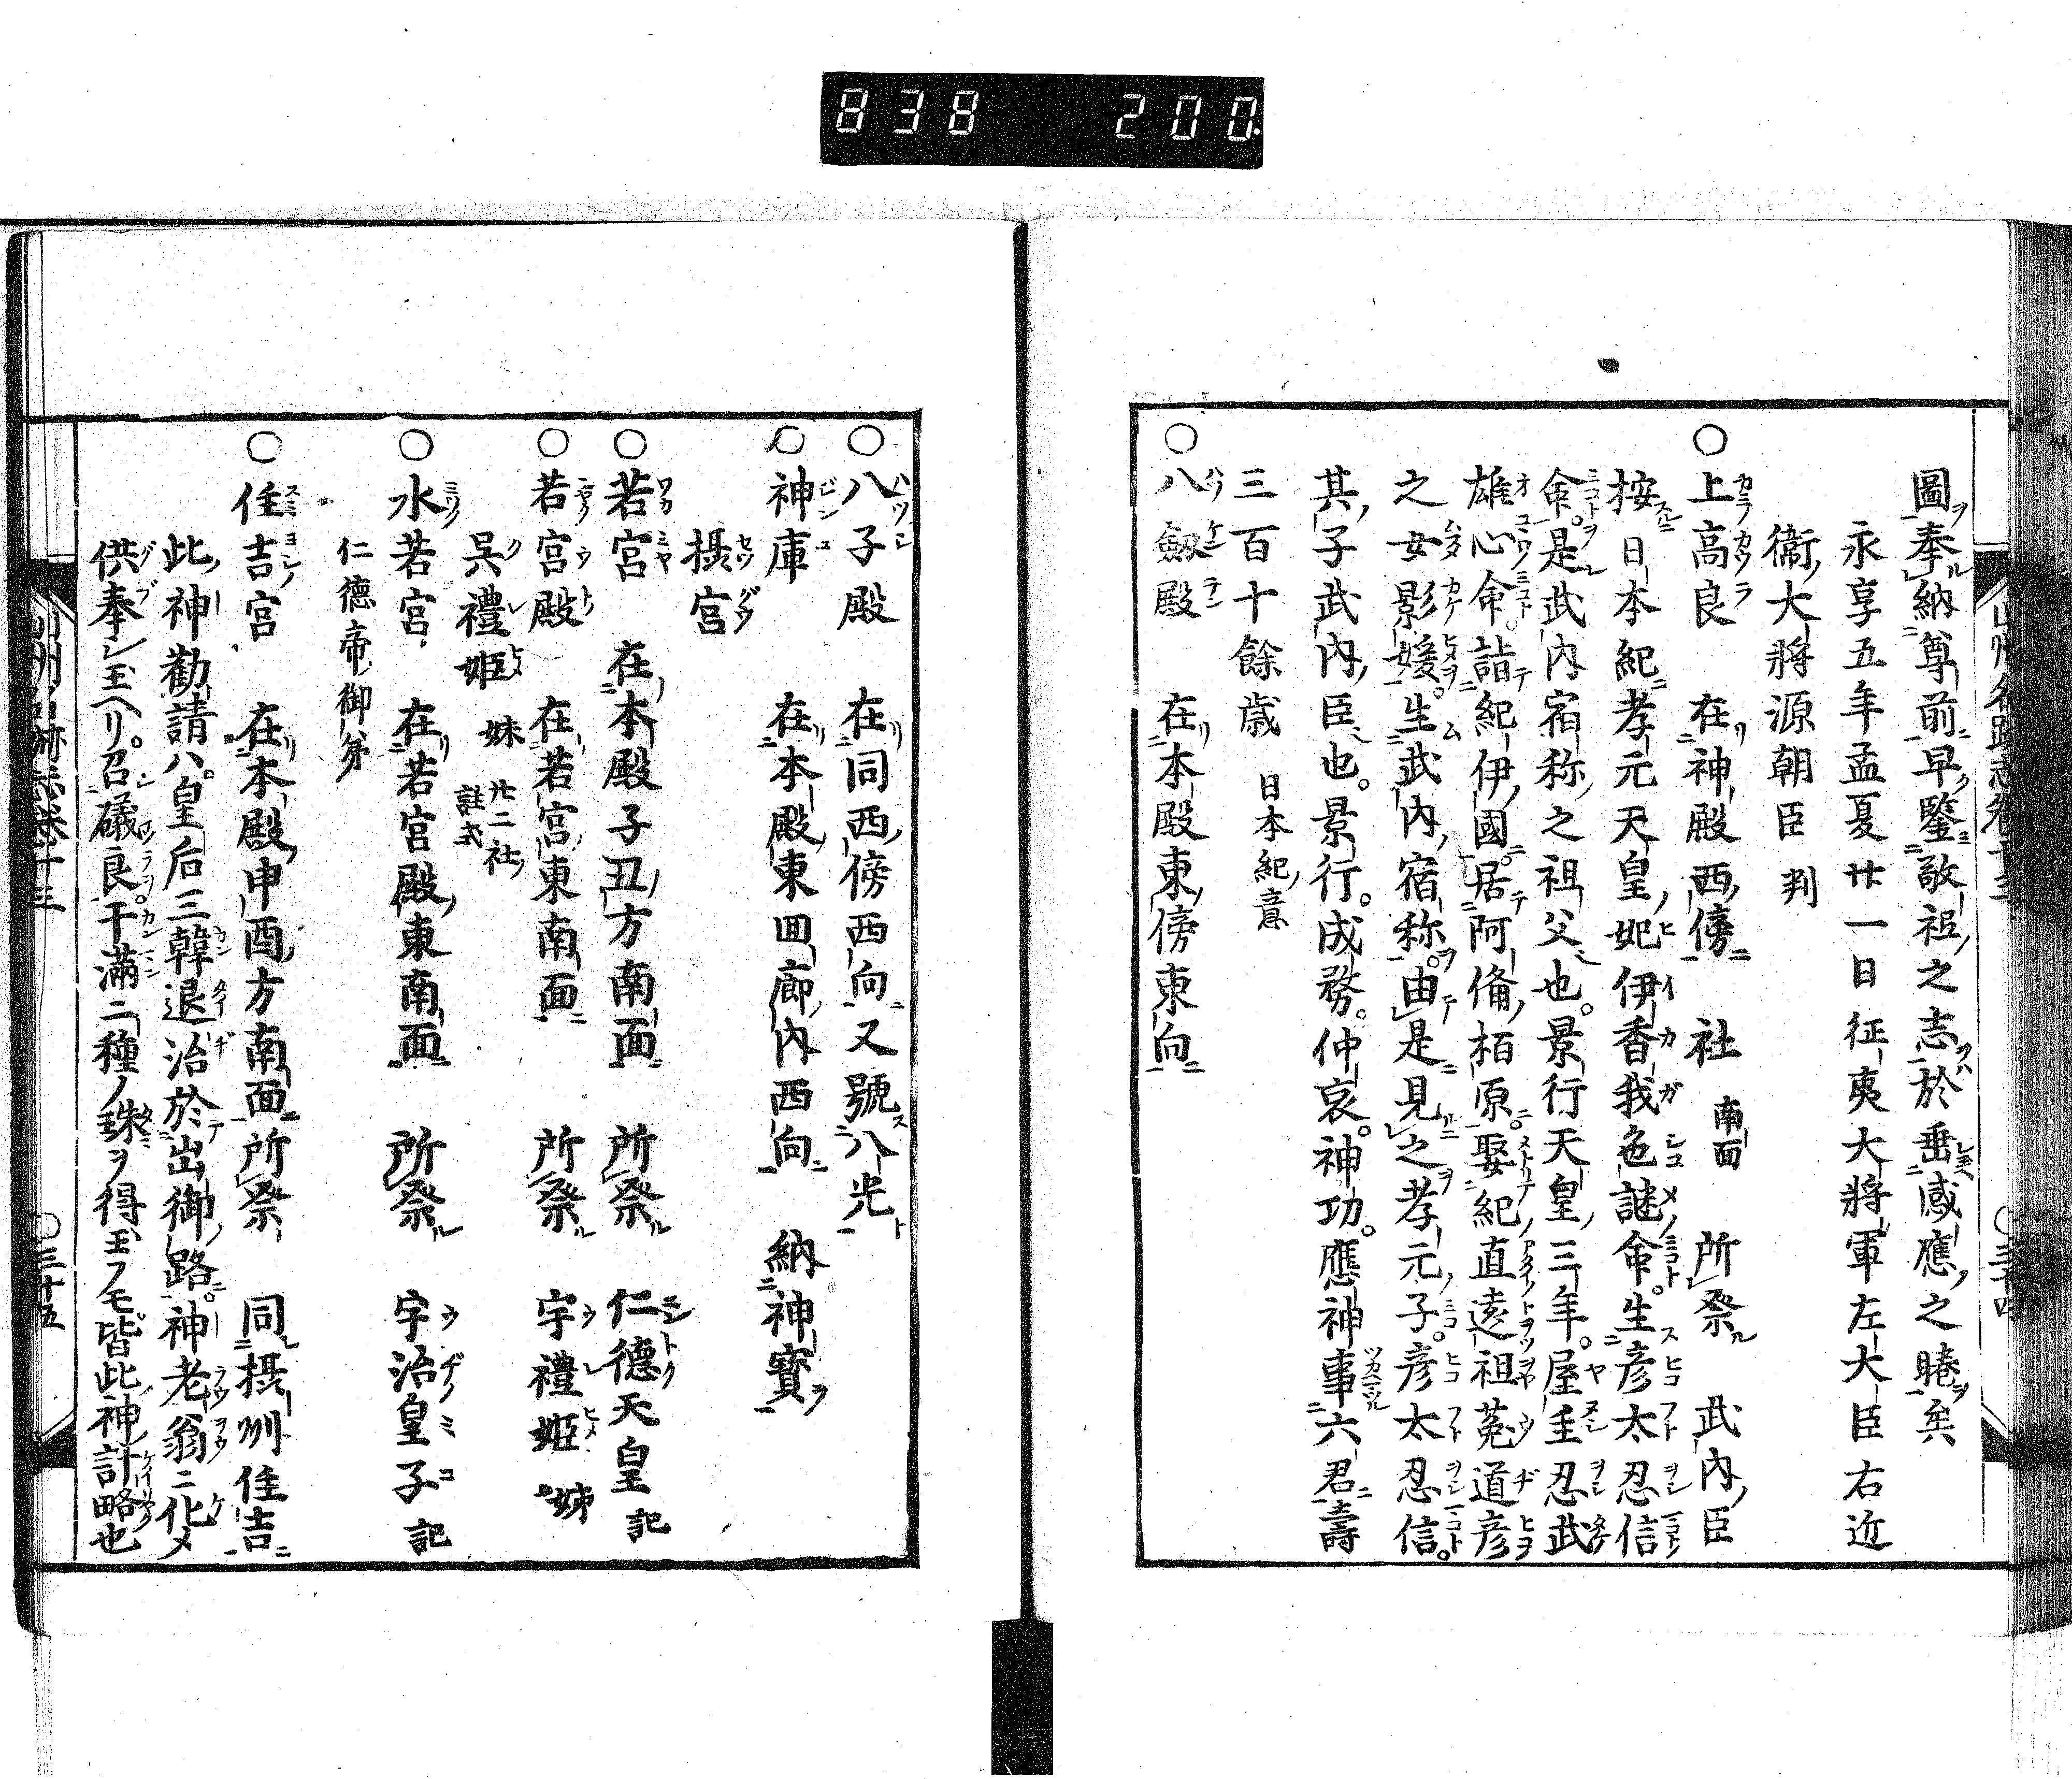 838 200.
圖奉納尊前早鑒敬祖之志於垂感應之睠矣
永享五年孟夏廿一日征夷大將軍左大臣右近
衞大將源朝臣判
○上高良 在神殿西傍 社南面 所祭 武內臣
按日本紀孝元天皇妃伊香我色謎命生彥太忍信
命是武內宿祢之祖父也景行天皇三年屋主忍武
雄心命詣紀伊國居阿備栢原娶紀直遠祖菟道彥
之女影媛生武內宿祢由是見之孝元子彥太忍信
其子武內臣也景行成務仲哀神功應神事六君壽
三百十餘歲 日本紀意
○八劔殿 在本殿東傍東向
○八子殿 在同西傍西向又號八光
○神庫 在本殿東回廊內西向 納神寶
攝宮
○若宮 在本殿子丑方南面 所祭 仁德天皇記
○若宮殿 在若宮東南面 所祭 宇禮姬 姉
吳禮姬 妹 廿二社註式
○水若宮 在若宮殿東南面 所祭 宇治皇子記
仁德帝御弟
○住吉宮 在本殿申酉方南面所祭 同攝刕住吉
此神勸請ハ皇后三韓退治於出御路神老翁ニ化メ
供奉シ玉ヘリ召礒良干滿二種ノ珠ヲ得玉フモ皆此神計略也